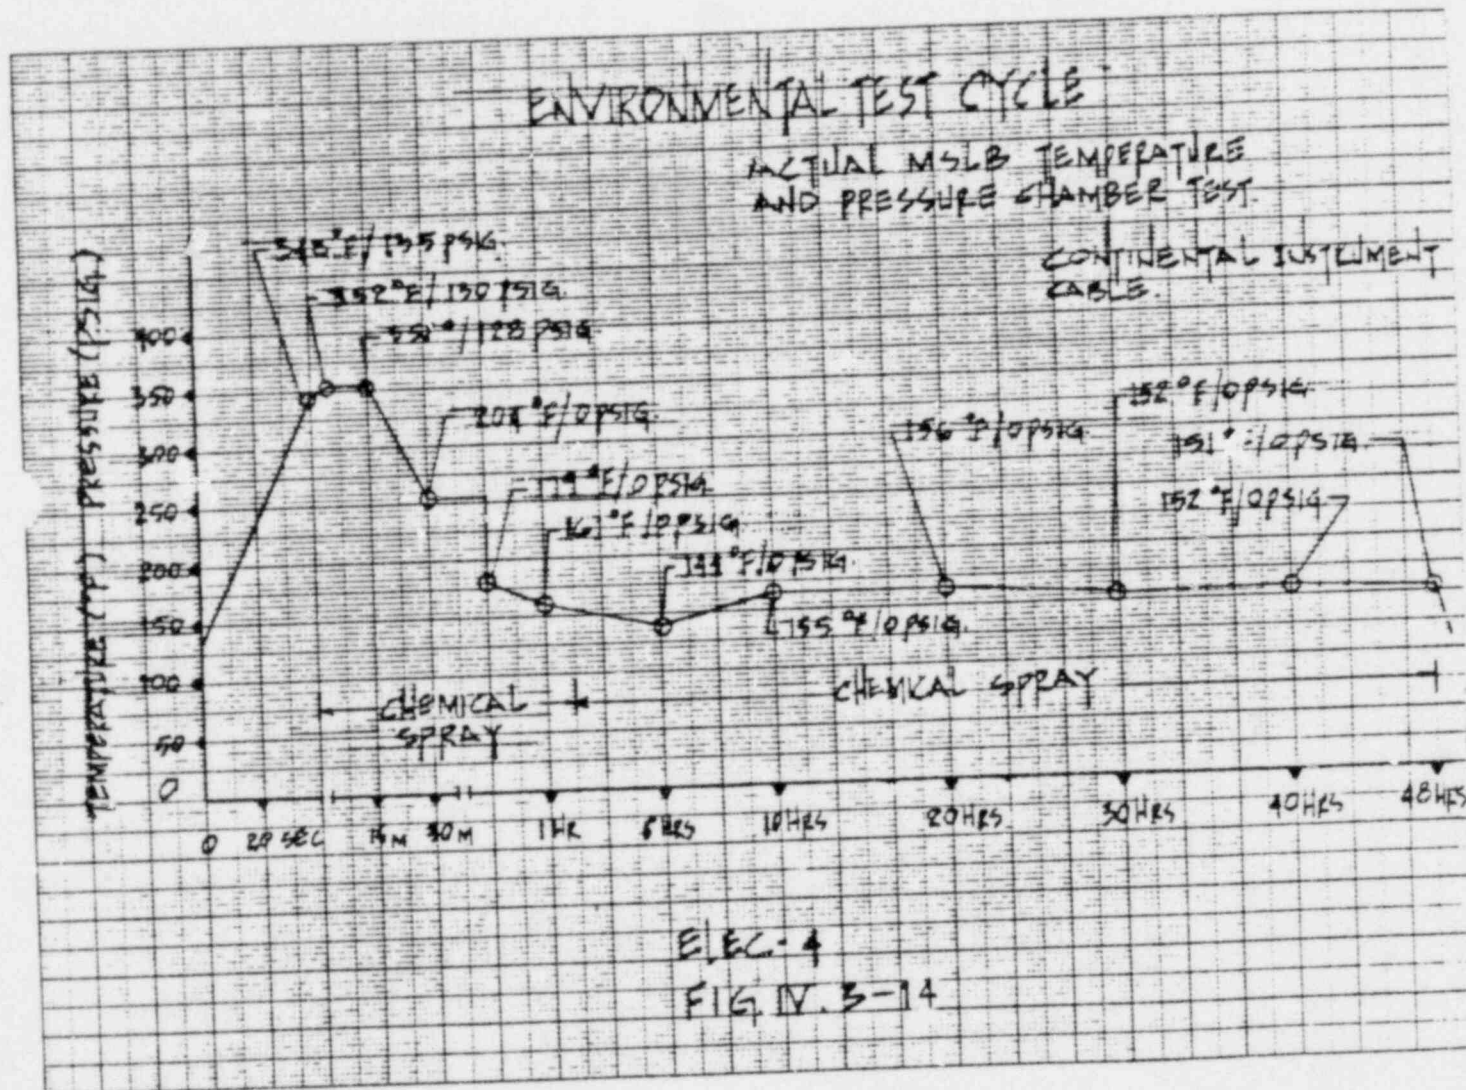 ENVIRONMENTAL TEST CYCLE
ACTUAL MSLB TEMPERATURE
AND PRESSURE CHAMBER TEST.
CONTINENTAL INSTRUMENT
CABLE.
TEMPERATURE (°F) PRESSURE (PSIG)
/135 PSIG.
352°F/130 PSIG.
/128 PSIG
°F/0 PSIG.
°F/0 PSIG
161°F/0 PSIG
°F/0 PSIG.
155°F/0 PSIG.
156°F/0 PSIG
152°F/0 PSIG.
151°F/0 PSIG.
152°F/0 PSIG
400
350
300
250
200
150
100
50
0
CHEMICAL
SPRAY
CHEMICAL SPRAY
0 20 SEC 15 M 30 M 1 HR HRS 10 HRS 20 HRS 30 HRS 40 HRS 48 HRS
ELEC.-4
FIG. IV. 3-14